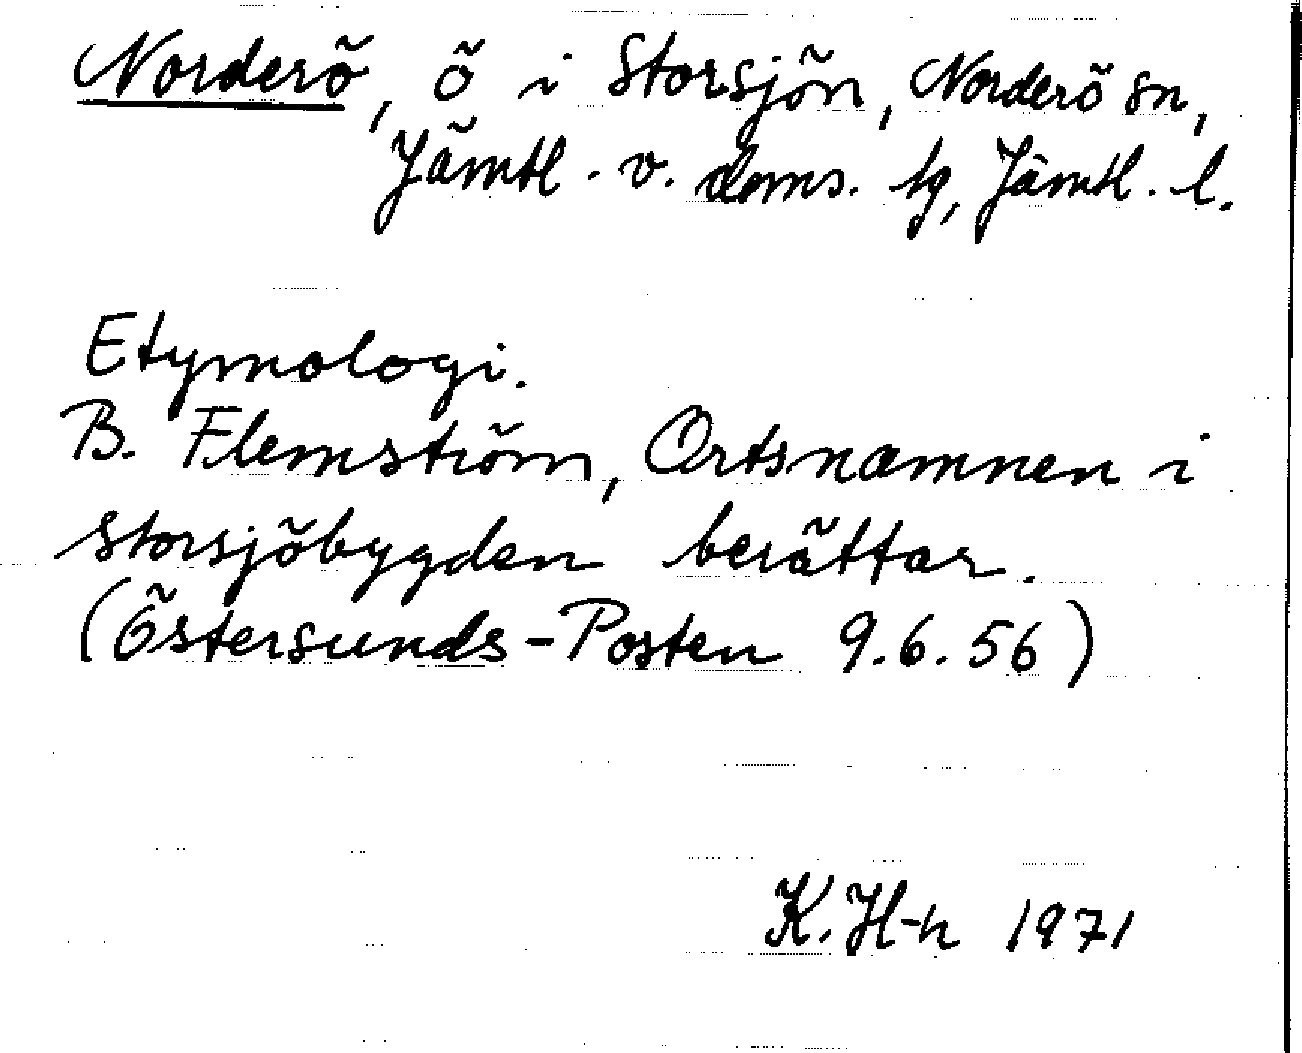 Norderö, ö i Storsjön, Norderö sn,
Jämtl. v. doms. tg, Jämtl. l.
Etymologi.
B. Flemström, Ortsnamnen i
Storsjöbygden berättar.
(Östersunds-Posten 9.6.56)
K. H-n 1971